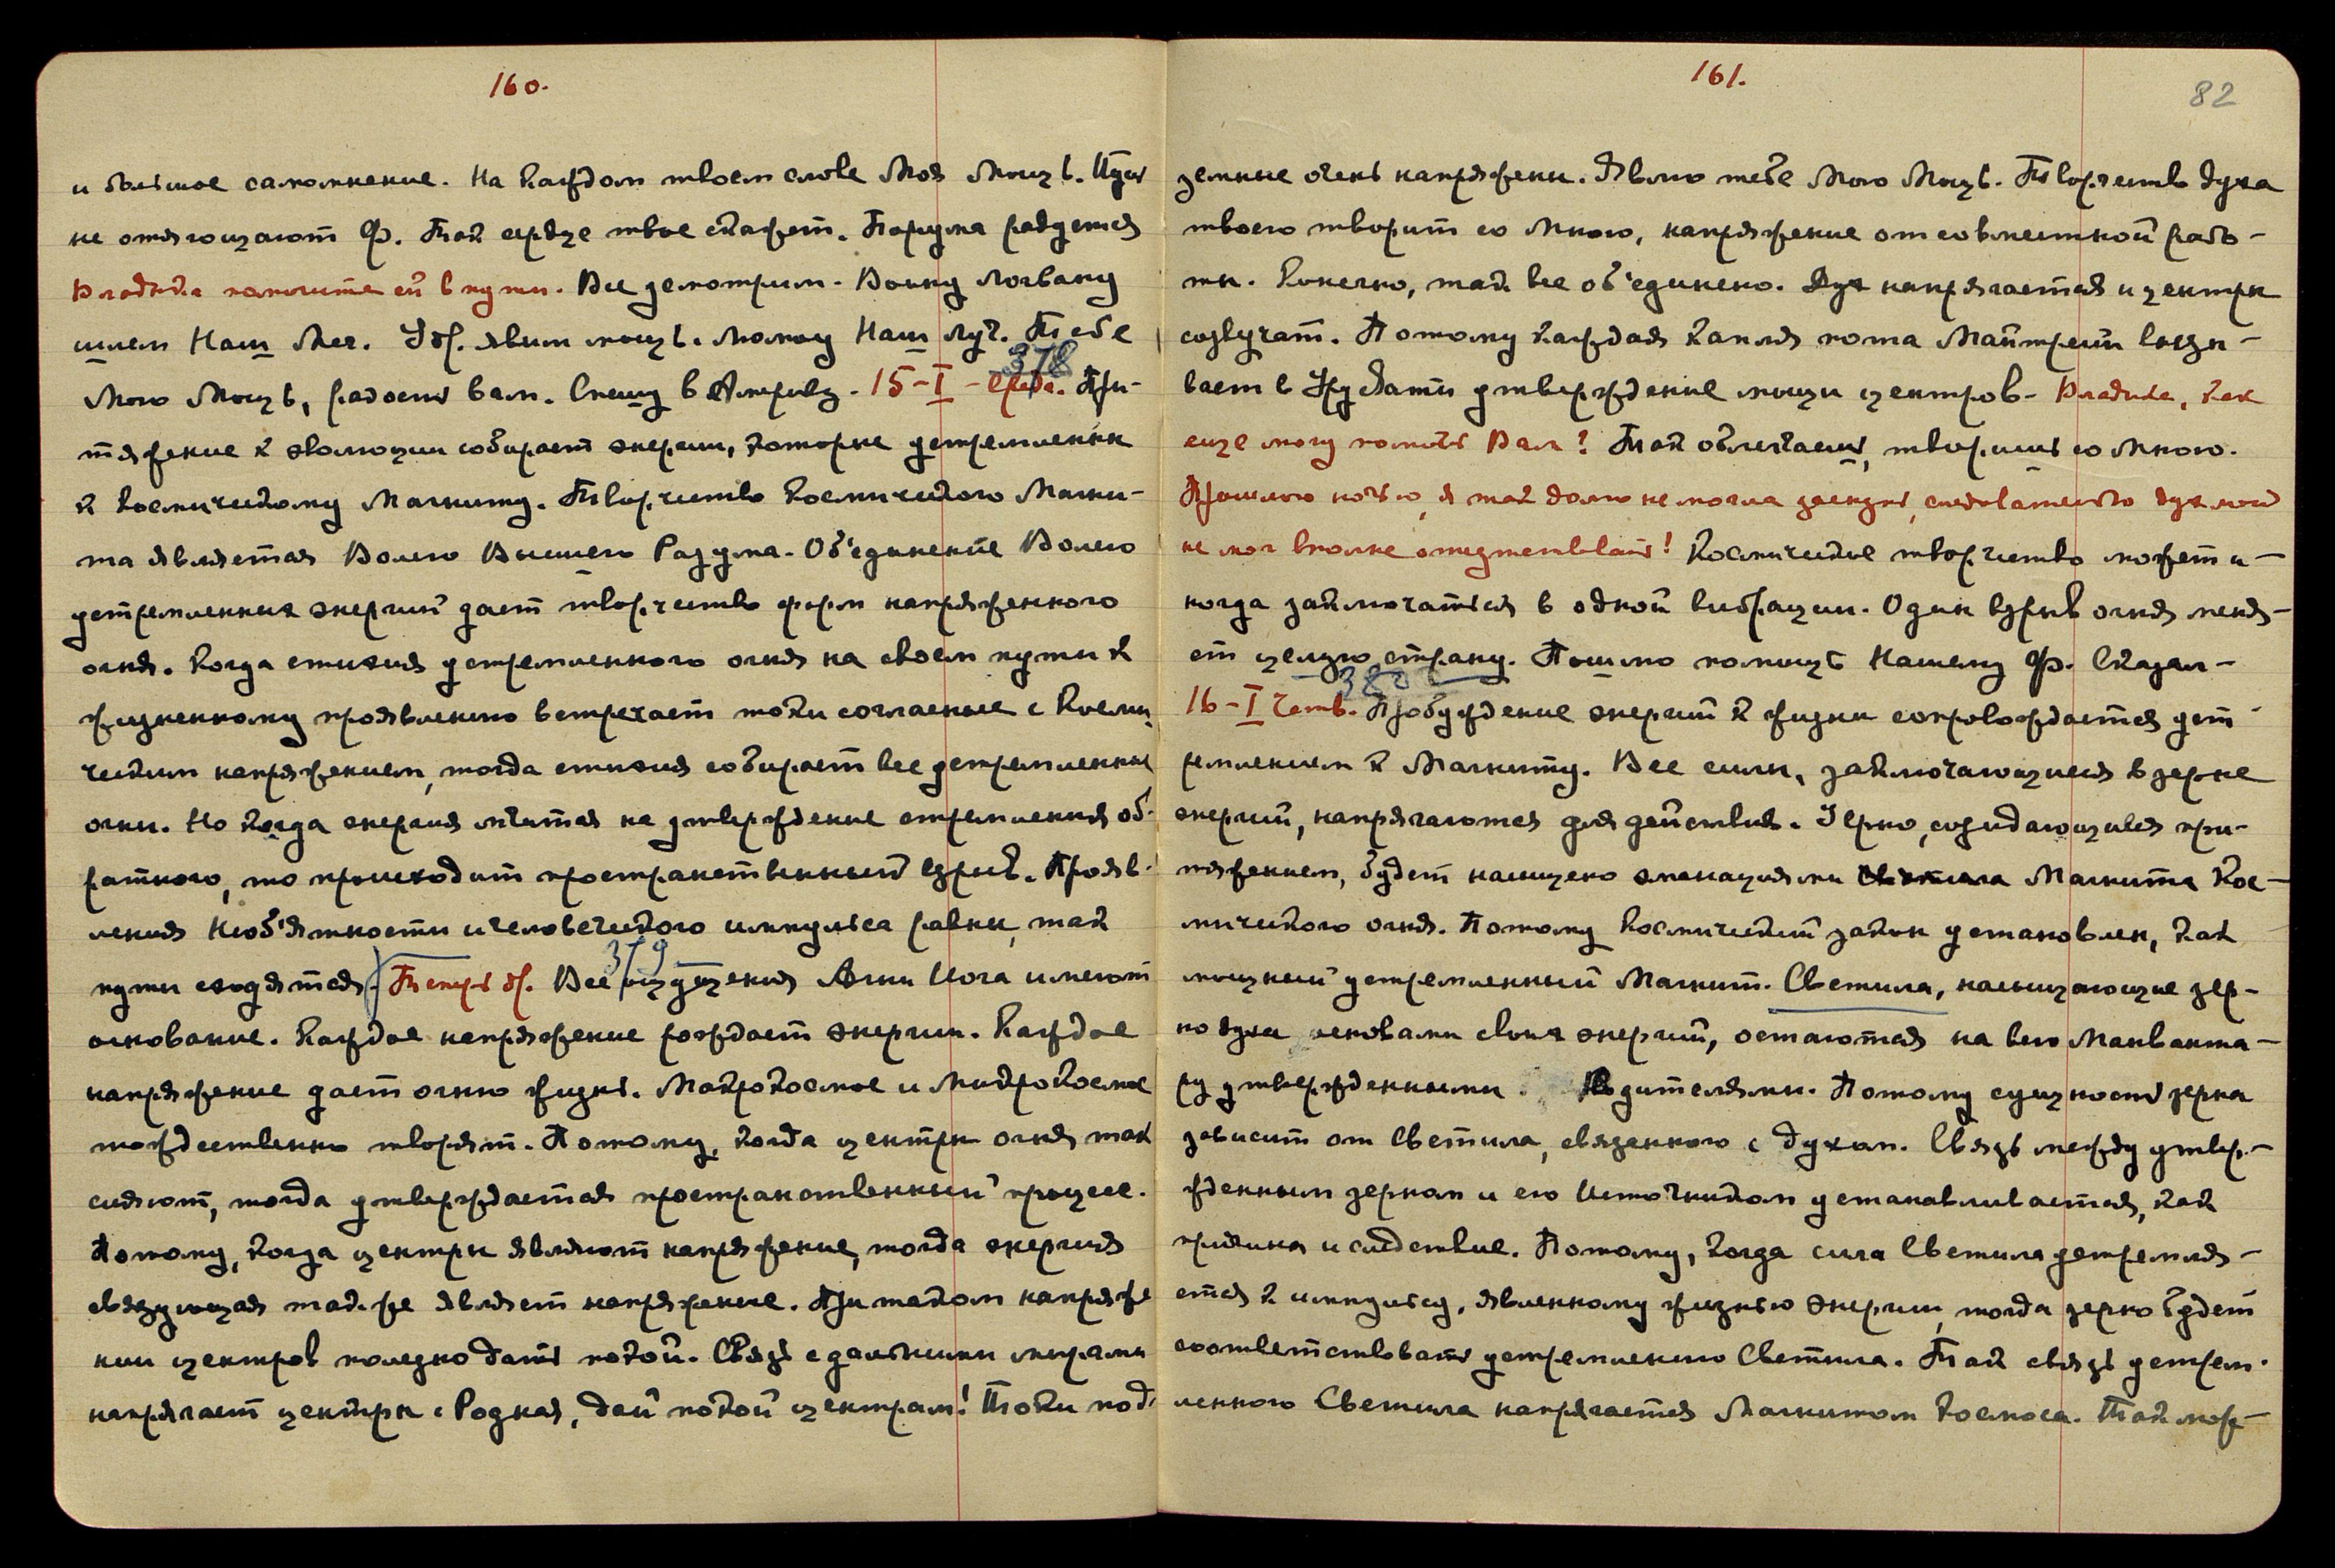 160.
и большое самомнение. На каждом твоем слове Моя Мощь. Пусть
не отягощают Ф. Так сердце твое скажет. Порума радуется
Владыка помогите ей в пути. Все усмотрим. Воину Логвану
шлем Наш Меч. Уд. явим мощь. Молоху Наш луч. Тебе
Мою Мощь, радость вам. Спешу в Америку. 15-I-среда. При-
378
тяжение к эволюции собирает энергии, которые устремлены
к Космическому Магниту. Творчество Космического Магни-
та является Волею Высшего Разума. Объединение Волею
устремленных энергий дает творчество форм напряженного
огня. Когда стихия устремленного огня на своем пути к
жизненному проявлению встречает токи согласные с Косми-
ческим напряжением, тогда стихия собирает все устремленные
огни. Но когда энергия мчится на утверждение стремления об-
ратного, то происходит пространственный взрыв. Прояв-
ления Необъятности и человеческого импульса равны, так
пути сходятся. Теперь др. Все ощущения Агни Йога имеют
379
основание. Каждое напряжение рождает энергии. Каждое
напряжение дает огню жизнь. Макрокосмос и Микрокосмос
тождественно творят. Потому, когда центры огня так
сияют, тогда утверждается пространственный процесс.
Потому, когда центры являют напряжение, тогда энергия
связующая также являет напряжение. При таком напряже
нии центров полезно дать покой. Связь с дальними мирами
напрягает центры. Родная, дай покой центрам! Токи под-
161.
82
земные очень напряжены. Являю тебе Мою Мощь. Творчество духа
твоего творит со Мною, напряжение от совместной рабо-
ты. Конечно, так все объединено. Дух напрягается и центры
созвучат. Потому каждая капля пота Майтрейи вызы-
вает в Урусвати утверждение мощи центров. Владыка, как
еще могу помочь Вам? Так облегчаешь, творишь со Мною.
Прошлою ночью, я так долго не могла заснуть, следовательно дух мой
не мог вполне отсутствовать! Космическое творчество может и-
ногда заключаться в одной вибрации. Один взрыв огня меня-
ет целую страну. Пошлю помощь Нашему Ф. Сказал-
380
16-I Четв. Пробуждение энергий к жизни сопровождается уст
ремлением к Магниту. Все силы, заключающиеся в зерне
энергий, напрягаются для действия. Зерно, созидающееся при-
тяжением, будет насыщено эманациями Магнита Кос-
мического огня. Потому Космический закон установлен, как
мощный устремленный Магнит. Светила, насыщающие зер-
но духа основами своих энергий, остаются на всю Манванта-
ру утвержденными водителями. Потому сущность зерна
зависит от Светила, связанного с духом. Связь между утвер-
жденным зерном и его Источником устанавливается, как
причина и следствие. Потому, когда сила Светила устремля-
ется к импульсу, явленному жизнью энергии, тогда зерно будет
соответствовать устремлению Светила. Так связь устрем-
ленного Светила напрягается Магнитом космоса. Так мож-